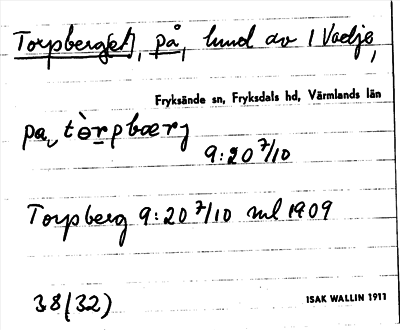 Torpberget, på, hmd av 1 Vadje,
Fryksände sn, Fryksdals hd, Värmlands län
pa tòrpbærj
9:20 7/10
Torpberg 9:20 7/10 ml 1909
38(32)
ISAK WALLIN 1911